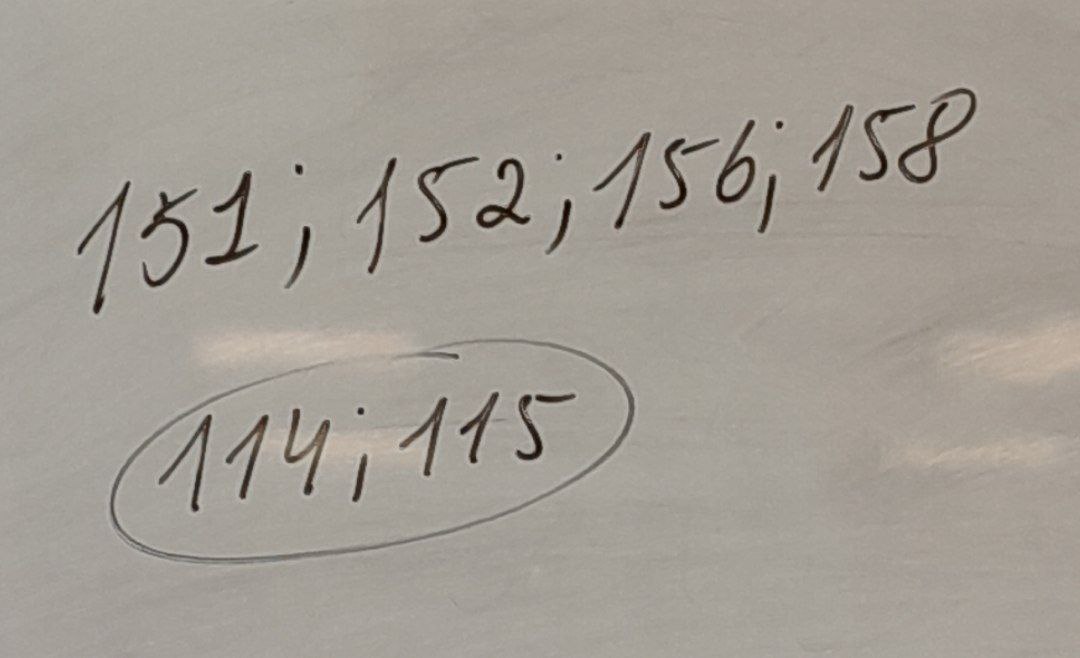 151; 152; 156; 158
114; 115